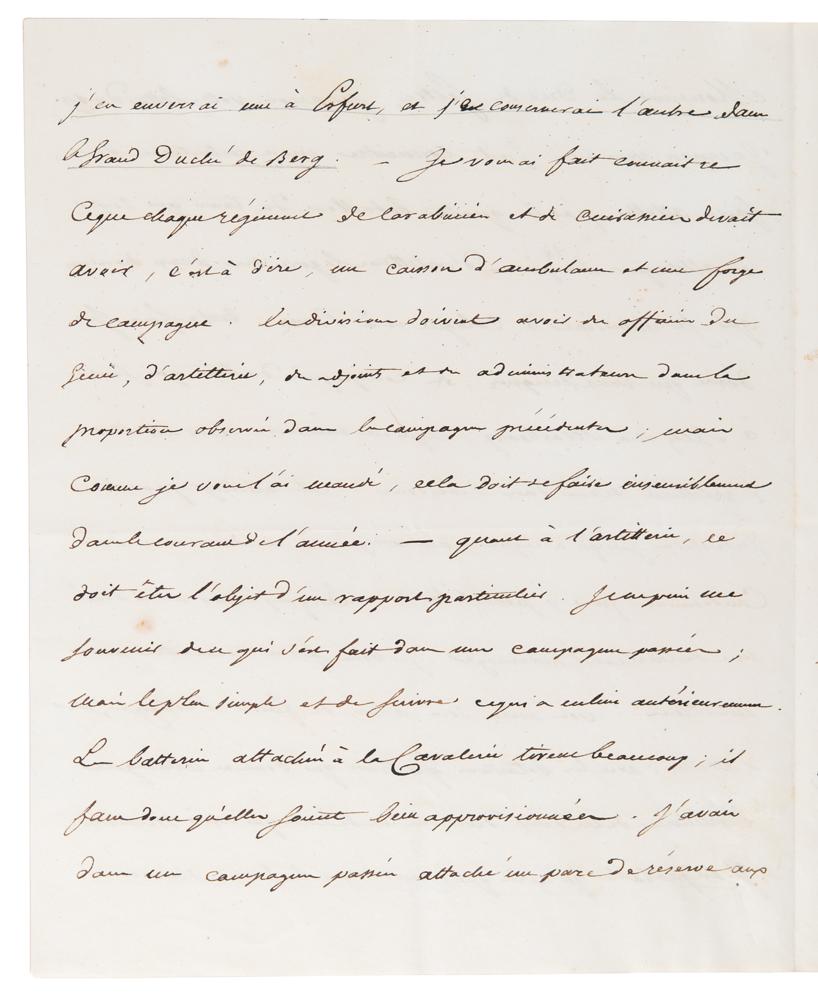 j'en enverrai une à Erfurt, et j'en conserverai l'autre dans
le Grand Duché de Berg. — Je vous ai fait connaitre
ce que chaque régiment de Carabiniers et de cuirassiers devait
avoir, c'est à dire, un caisson d'ambulance et une forge
de campagne. les divisions doivent avoir des officiers du
Génie, d'artillerie, des adjoints et des administrateurs dans la
proportion observée dans les campagnes précédentes; mais
Comme je vous l'ai mandé, cela doit se faire insensiblement
dans le courant de l'année. — quant à l'artillerie, ce
doit être l'objet d'un rapport particulier. Je ne puis me
souvenir de ce qui s'est fait dans mes campagnes passées;
mais le plus simple est de suivre ce qui a eu lieu antérieurement.
Les batteries attachées à la Cavalerie tirent beaucoup; il
faut donc qu'elles soient bien approvisionnées. J'avais
dans mes campagnes passées attaché un parc de réserve aux